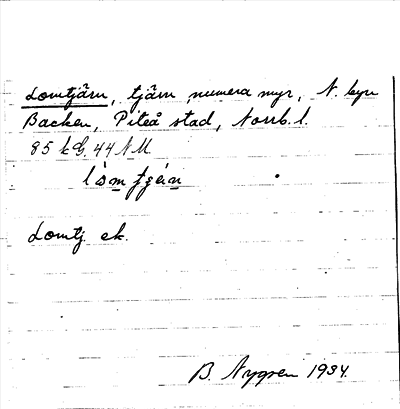 Lomtjärn, tjärn, numera myr, N. byn
Backen, Piteå stad, Norrb. l.
85 k G. 44 N M
Lomtj. ek.
B. Nygren 1934.